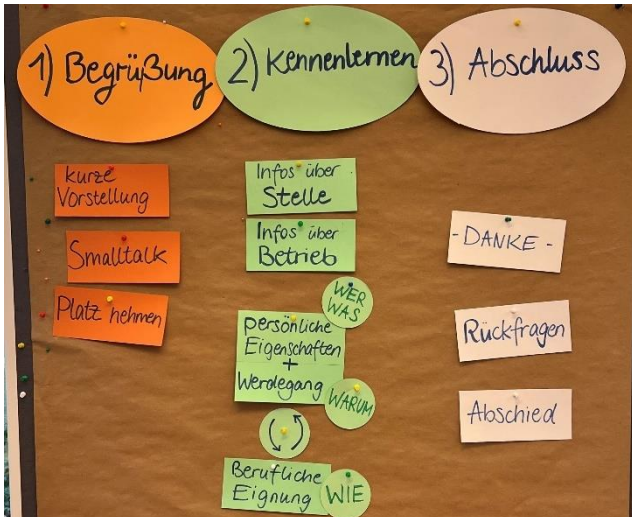 1) Begrüßung
kurze
Vorstellung
Smalltalk
Platz nehmen
2) Kennenlernen
Infos über
Stelle
Infos über
Betrieb
WER
WAS
persönliche
Eigenschaften
+
Werdegang
WARUM
Berufliche
Eignung
WIE
3) Abschluss
- DANKE -
Rückfragen
Abschied